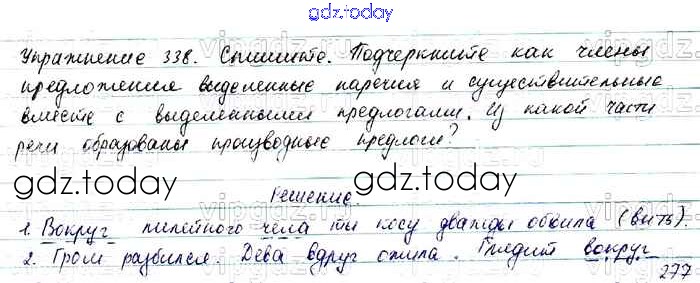 gdz.today
Упражнение 338. Спишите. Подчеркните как члены
предложения выделенные наречия и существительные
вместе с выделенными предлогами. Из какой части
речи образованы производные предлоги?
gdz.today gdz.today
Решение.
1. Вокруг лилейного чела ты косу дважды обвила (вить).
2. Гром разбился. Дева вдруг ожила. Глядит вокруг
277